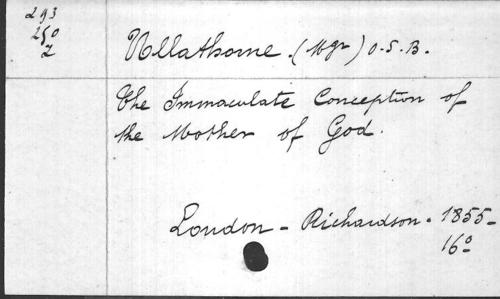 293
250
2
Ullathorne. (Mgr) O.S.B.
The Immaculate Conception of
the Mother of God.
London - Richardson. 1855-
16º